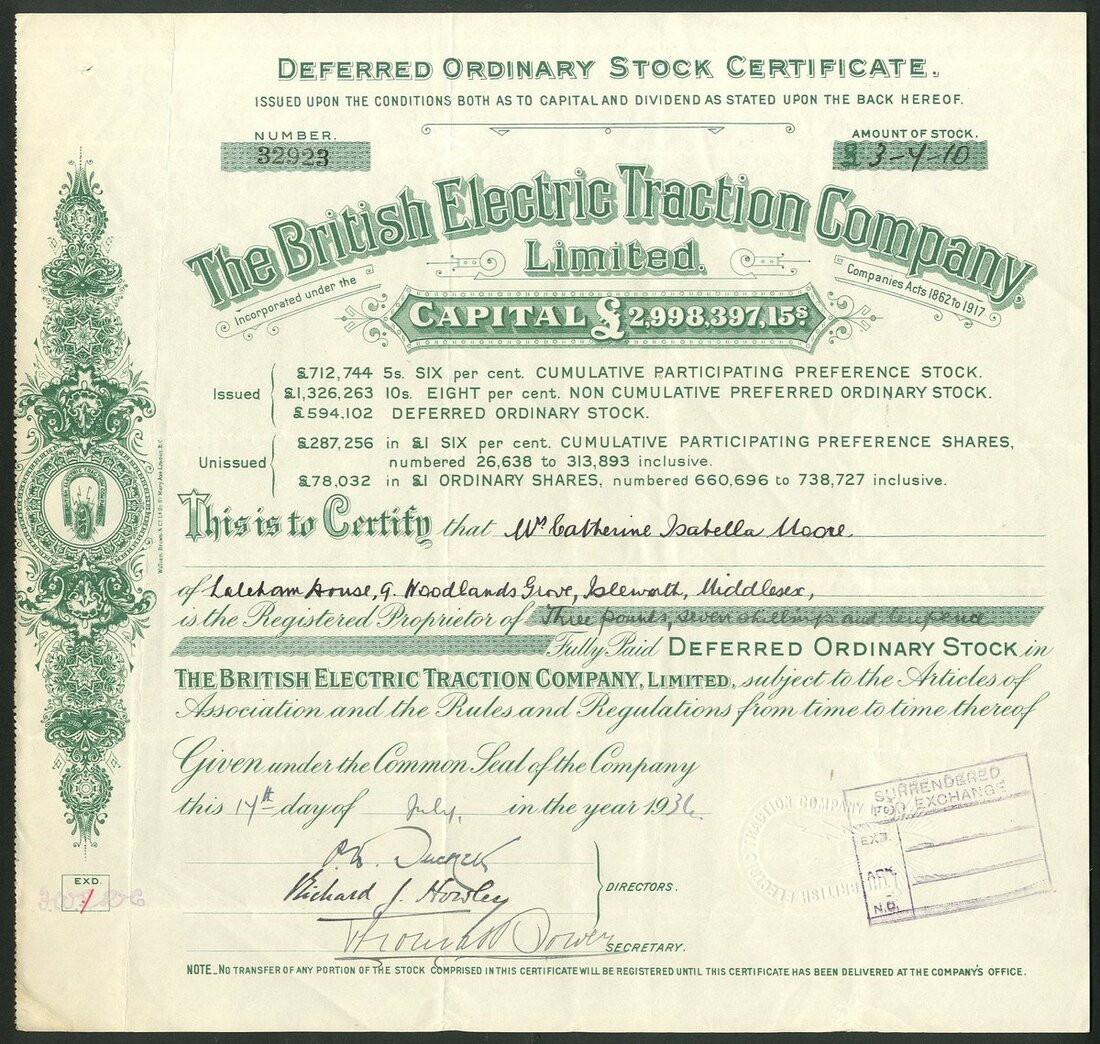 DEFERRED ORDINARY STOCK CERTIFICATE.
ISSUED UPON THE CONDITIONS BOTH AS TO CAPITAL AND DIVIDEND AS STATED UPON THE BACK HEREOF.
NUMBER.
32923
AMOUNT OF STOCK.
£ 3-7-10
The British Electric Traction Company,
Limited.
Incorporated under the
Companies Acts 1862 to 1917
CAPITAL £2,998,397,15s.
Issued
£712,744 5s. SIX per cent. CUMULATIVE PARTICIPATING PREFERENCE STOCK.
£1,326,263 10s. EIGHT per cent. NON CUMULATIVE PREFERRED ORDINARY STOCK.
£594,102 DEFERRED ORDINARY STOCK.
Unissued
£287,256 in £1 SIX per cent. CUMULATIVE PARTICIPATING PREFERENCE SHARES,
numbered 26,638 to 313,893 inclusive.
£78,032 in £1 ORDINARY SHARES, numbered 660,696 to 738,727 inclusive.
This is to Certify that Mrs Catherine Isabella Moore.
of Laleham House, 9. Woodlands Grove, Isleworth, Middlesex,
is the Registered Proprietor of Three pounds, seven shillings and tenpence
Fully Paid DEFERRED ORDINARY STOCK in
THE BRITISH ELECTRIC TRACTION COMPANY, LIMITED, subject to the Articles of
Association and the Rules and Regulations from time to time thereof
Given under the Common Seal of the Company
this 17th day of July, in the year 1936
SURRENDERED
FOR EXCHANGE
EXD.
N.O.
Richard J. Howley
DIRECTORS.
SECRETARY.
EXD.
NOTE_NO TRANSFER OF ANY PORTION OF THE STOCK COMPRISED IN THIS CERTIFICATE WILL BE REGISTERED UNTIL THIS CERTIFICATE HAS BEEN DELIVERED AT THE COMPANY'S OFFICE.